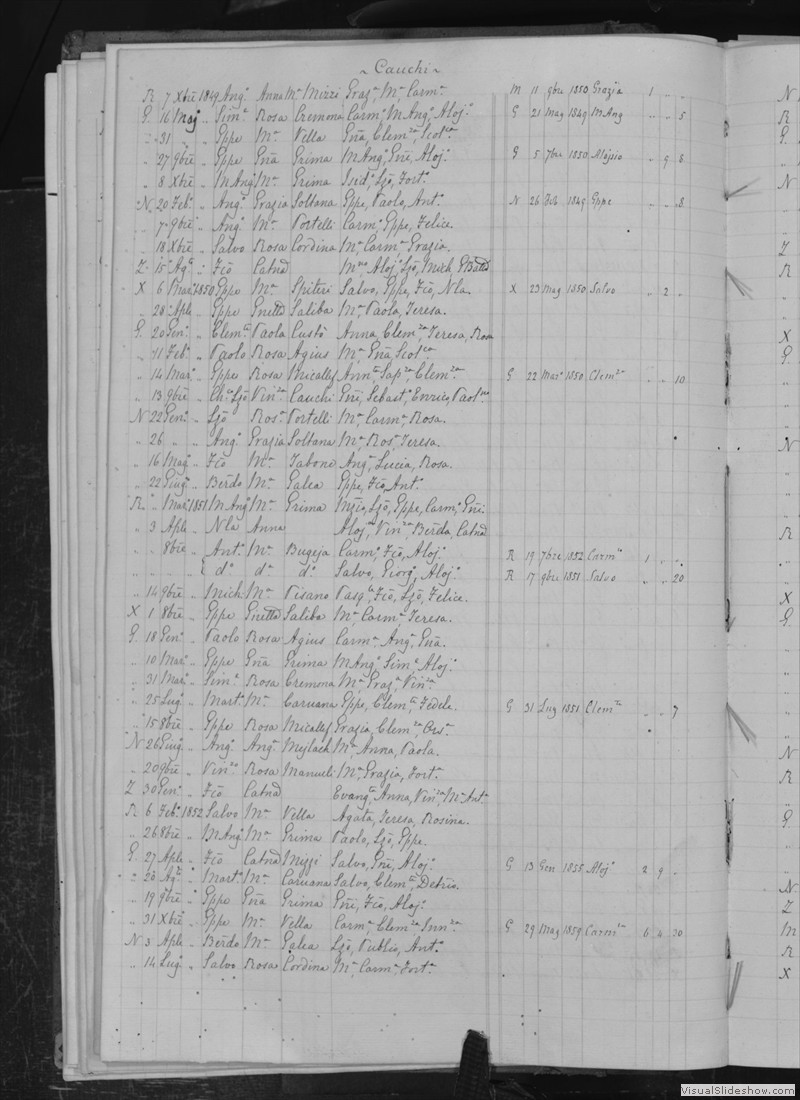 ~ Cauchi ~
R 7 Xbre 1849 Ango Anna Ma Mizzi Graza, Ma, Carma M 11 9bre 1850 Grazia 1 " "
G. 16 Maj " Sime Rosa Cremona Carmo, M Ango, Alojo G 21 Mag 1849 M Ang " " 5
" 31 " " Gppe Ma Vella Gna, Clemza,
" 27 9bre " Gppe Gna Grima M Ango, Gni, Alojo G 5 7bre 1850 Alojsio " 9 8
" 8 Xbre " M Ango Ma Grima Isido, Lzo, Forta
N 20 Febo " Ango Grazia Soltana Gppe, Paolo, Anto N 26 Feb 1849 Gppe " " 8
" 7 9bre " Ango Ma Portelli Carmo, Gppe, Felice.
" 18 Xbre " Salvo Rosa Cordina Ma, Carma, Grazia.
Z 15 Ago " Fco Catna Alojo, Lzo, Mich,
X 6 Maro 1850 Gppe Ma Spiteri Salvo, Gppe, Fco, Nla. X 23 Mag 1850 Salvo " 2 "
" 28 Aple " Gppe Gnetta Saliba Ma, Paola, Teresa.
G. 20 Geno " Clemte Paola Custò Anna, Clemza, Teresa, Rosa
" 11 Febo " Paolo Rosa Agius Ma, Gna,
" 14 Maro " Gppe Rosa Micallef Annta, Sapza, Clemza G 22 Maro 1850 Clemza " " 10
" 13 9bre " Lzo Vinza Cauchi Gni, Sebasto, Enrico, Paolno
N 22 Geno " Lzo Rosa Portelli Ma, Carma, Rosa.
" 26 " " Ango Grazia Soltana Ma, Rosa, Teresa.
" 16 Mago " Fco Ma Tabone Anga, Lucia, Rosa.
" 22 Giugo " Berdo Ma Galea Gppe, Fco, Anto
R " Maro 1851 M Ango Ma Grima Nzio, Lzo, Gppe, Carmo, Gni.
" 3 Aple " Nla Anna Aloja, Vinza, Berda, Catna
" " 8bre " Anto Ma Bugeja Carmo, Fco, Alojo R 19 7bre 1852 Carmo 1 " "
" " " " do do do Salvo, Giorgo, Alojo R 17 9bre 1851 Salvo " " 20
" 14 9bre " Mich Ma Pisano Pasqle, Fco, Lzo, Felice.
X 1 8bre " Gppe Gnetta Saliba Ma, Carma, Teresa.
G 18 Geno " Paolo Rosa Agius Carma, Anga, Gna.
" 10 Maro " Gppe Gna Grima M Ango, Sime, Alojo
" 31 Maro " Sime Rosa Cremona Ma, Graza, Vinza
" 25 Lugo " Marto Ma Caruana Gppe, Clemte, Fedele. G 31 Lug 1851 Clemte " " 7
" 15 8bre " Gppe Rosa Micallef Grazia, Clemza, Orsa
N 26 Giugo " Ango Anga Mejlach Ma, Anna, Paola.
" 20 9bre " Vinzo Rosa Manueli Ma, Grazia, Forta
Z 30 Geno " Fco Catna Evangta, Anna, Vinza, Ma Anta
R 6 Febo 1852 Salvo Ma Vella Agata, Teresa, Rosina.
" 26 8bre " M Ango Ma Grima Paolo, Lzo, Gppe.
G. 27 Aple " Fco Catna Mizzi Salvo, Gni, Alojo G 13 Gen 1855 Alojo 2 9 "
" 23 Ago " Marto Ma Caruana Salvo, Clemte,
" 19 9bre " Gppe Gna Grima Gni, Fco, Alojo
" 31 Xbre " Gppe Ma Vella Carma, Clemza, Innza G 29 Mag 1859 Carma 6 4 30
N 3 Aple " Berdo Ma Galea Lzo, Publio, Anto
" 14 Lugo " Salvo Rosa Cordina Ma, Carma, Forta
N
R
G
N
Z
R
X
G
N
R
X
G
N
R
G
N
Z
M
R
X
VisualSlideshow.com